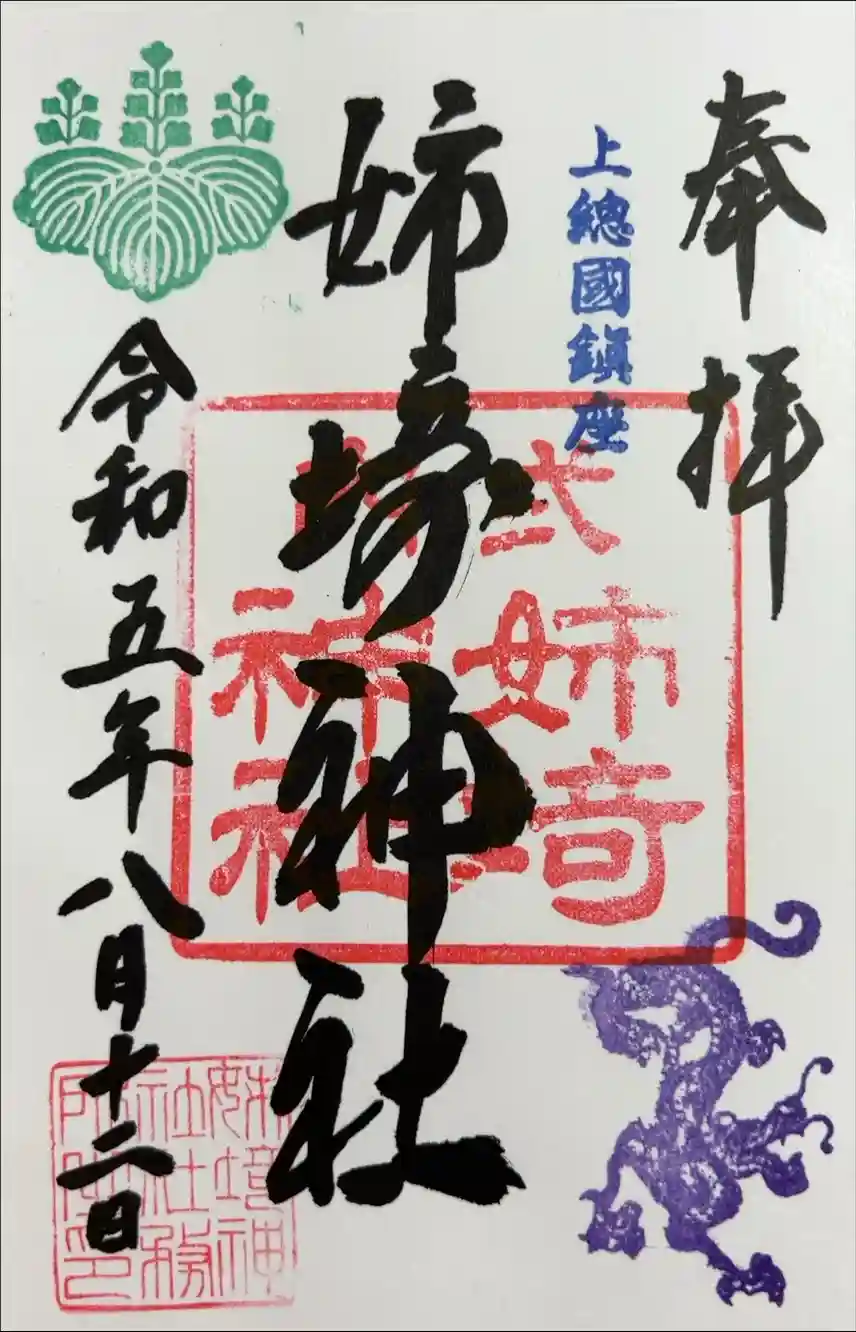 奉拝
上總國鎮座
姉埼神社
式内
姉埼
神社
令和五年八月十二日
姉埼神
社社務
所之印